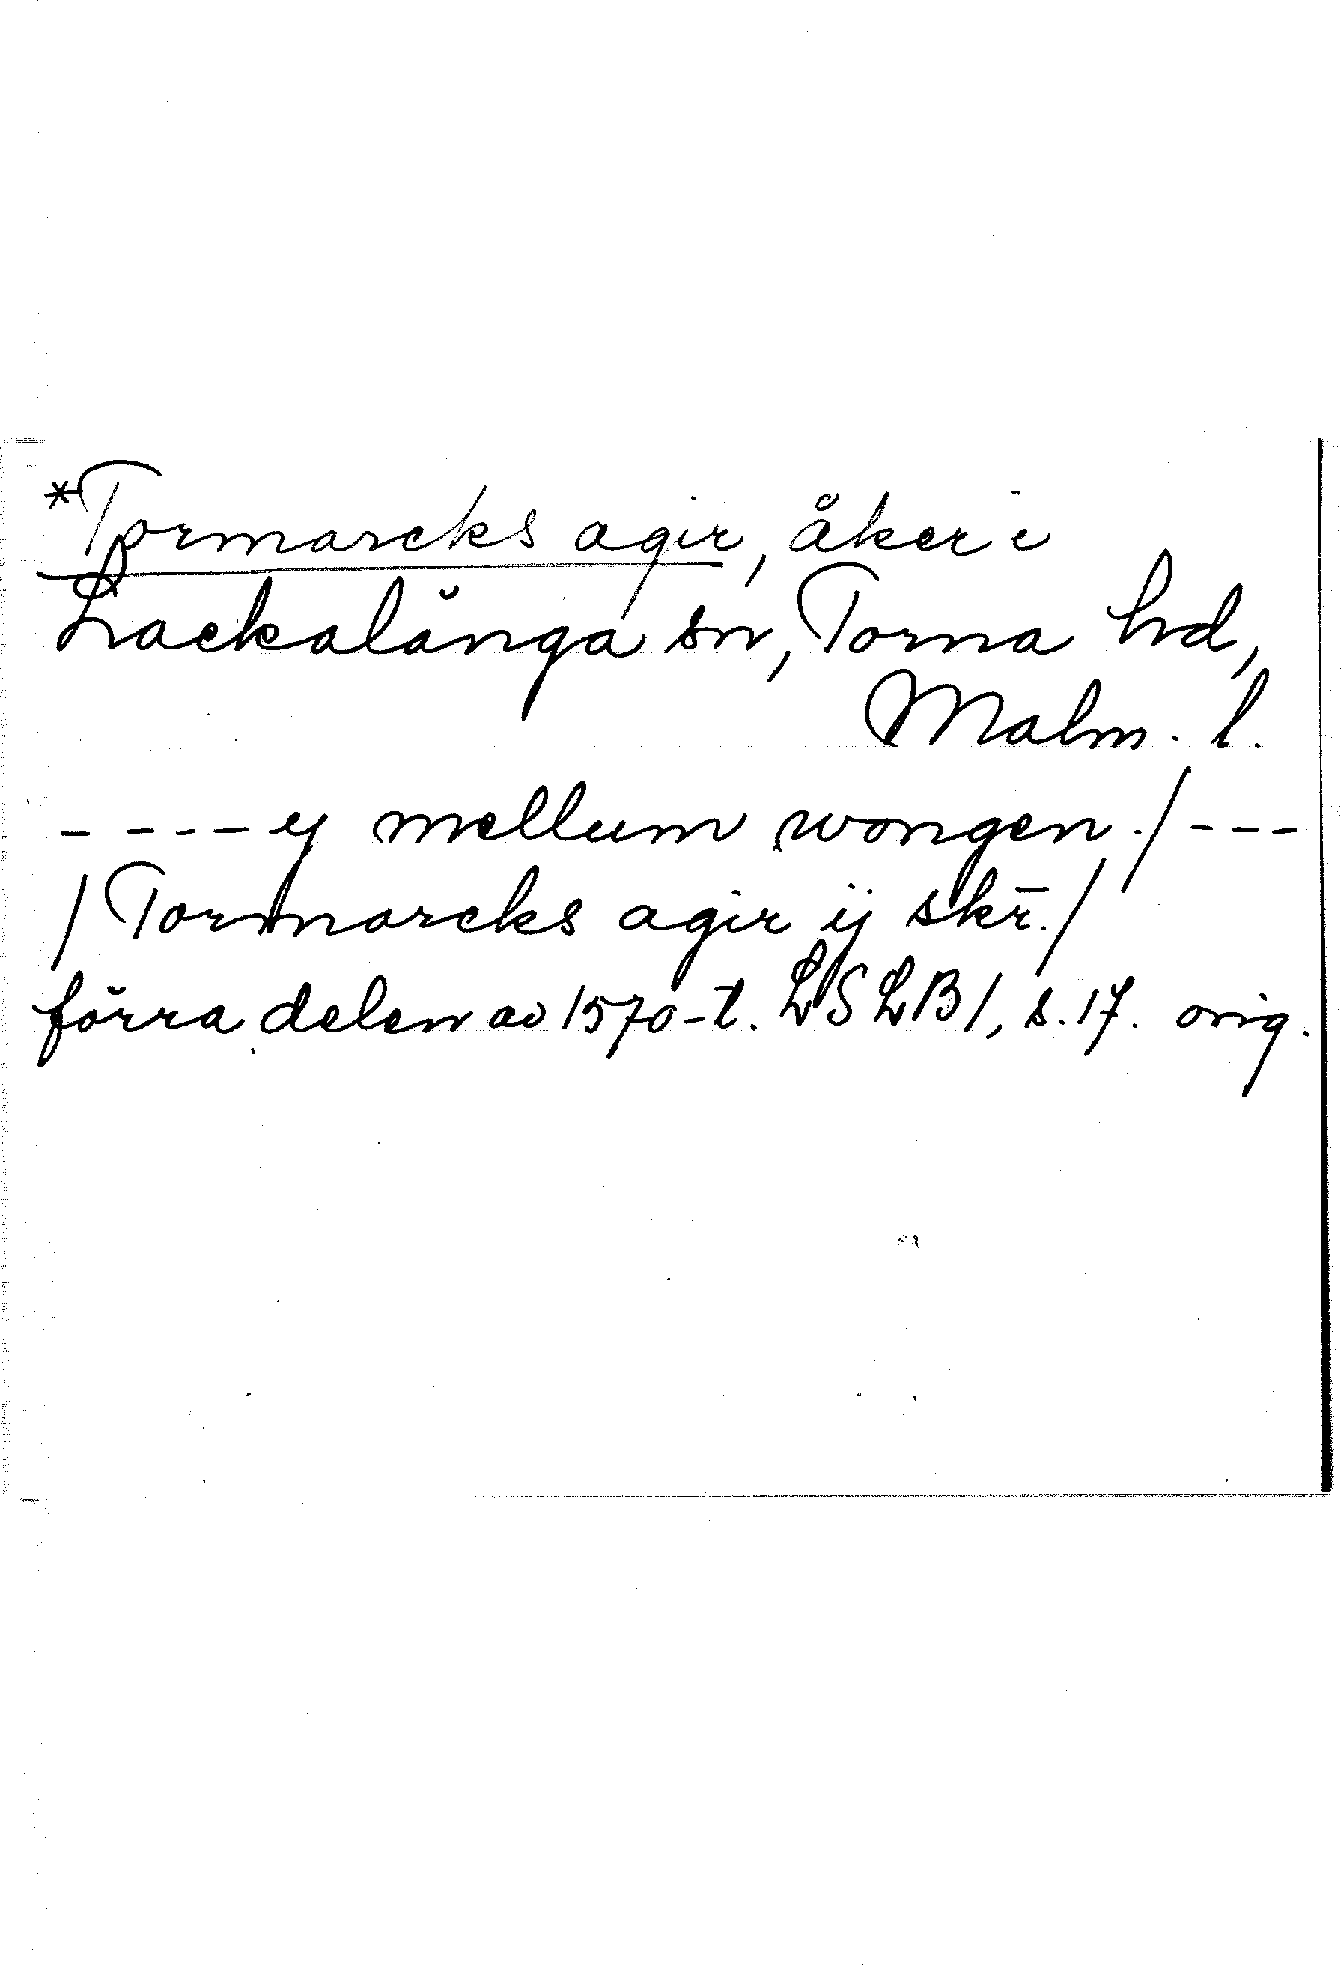 *Tormarcks agir, åker i
Lackalånga sn, Torna hd,
Malm. l.
- - - - y mellum wongen ./ - - -
/ Tormarcks agir ij skr̄./
förra delen av 1570-t. LSLB 1, s. 17. orig.